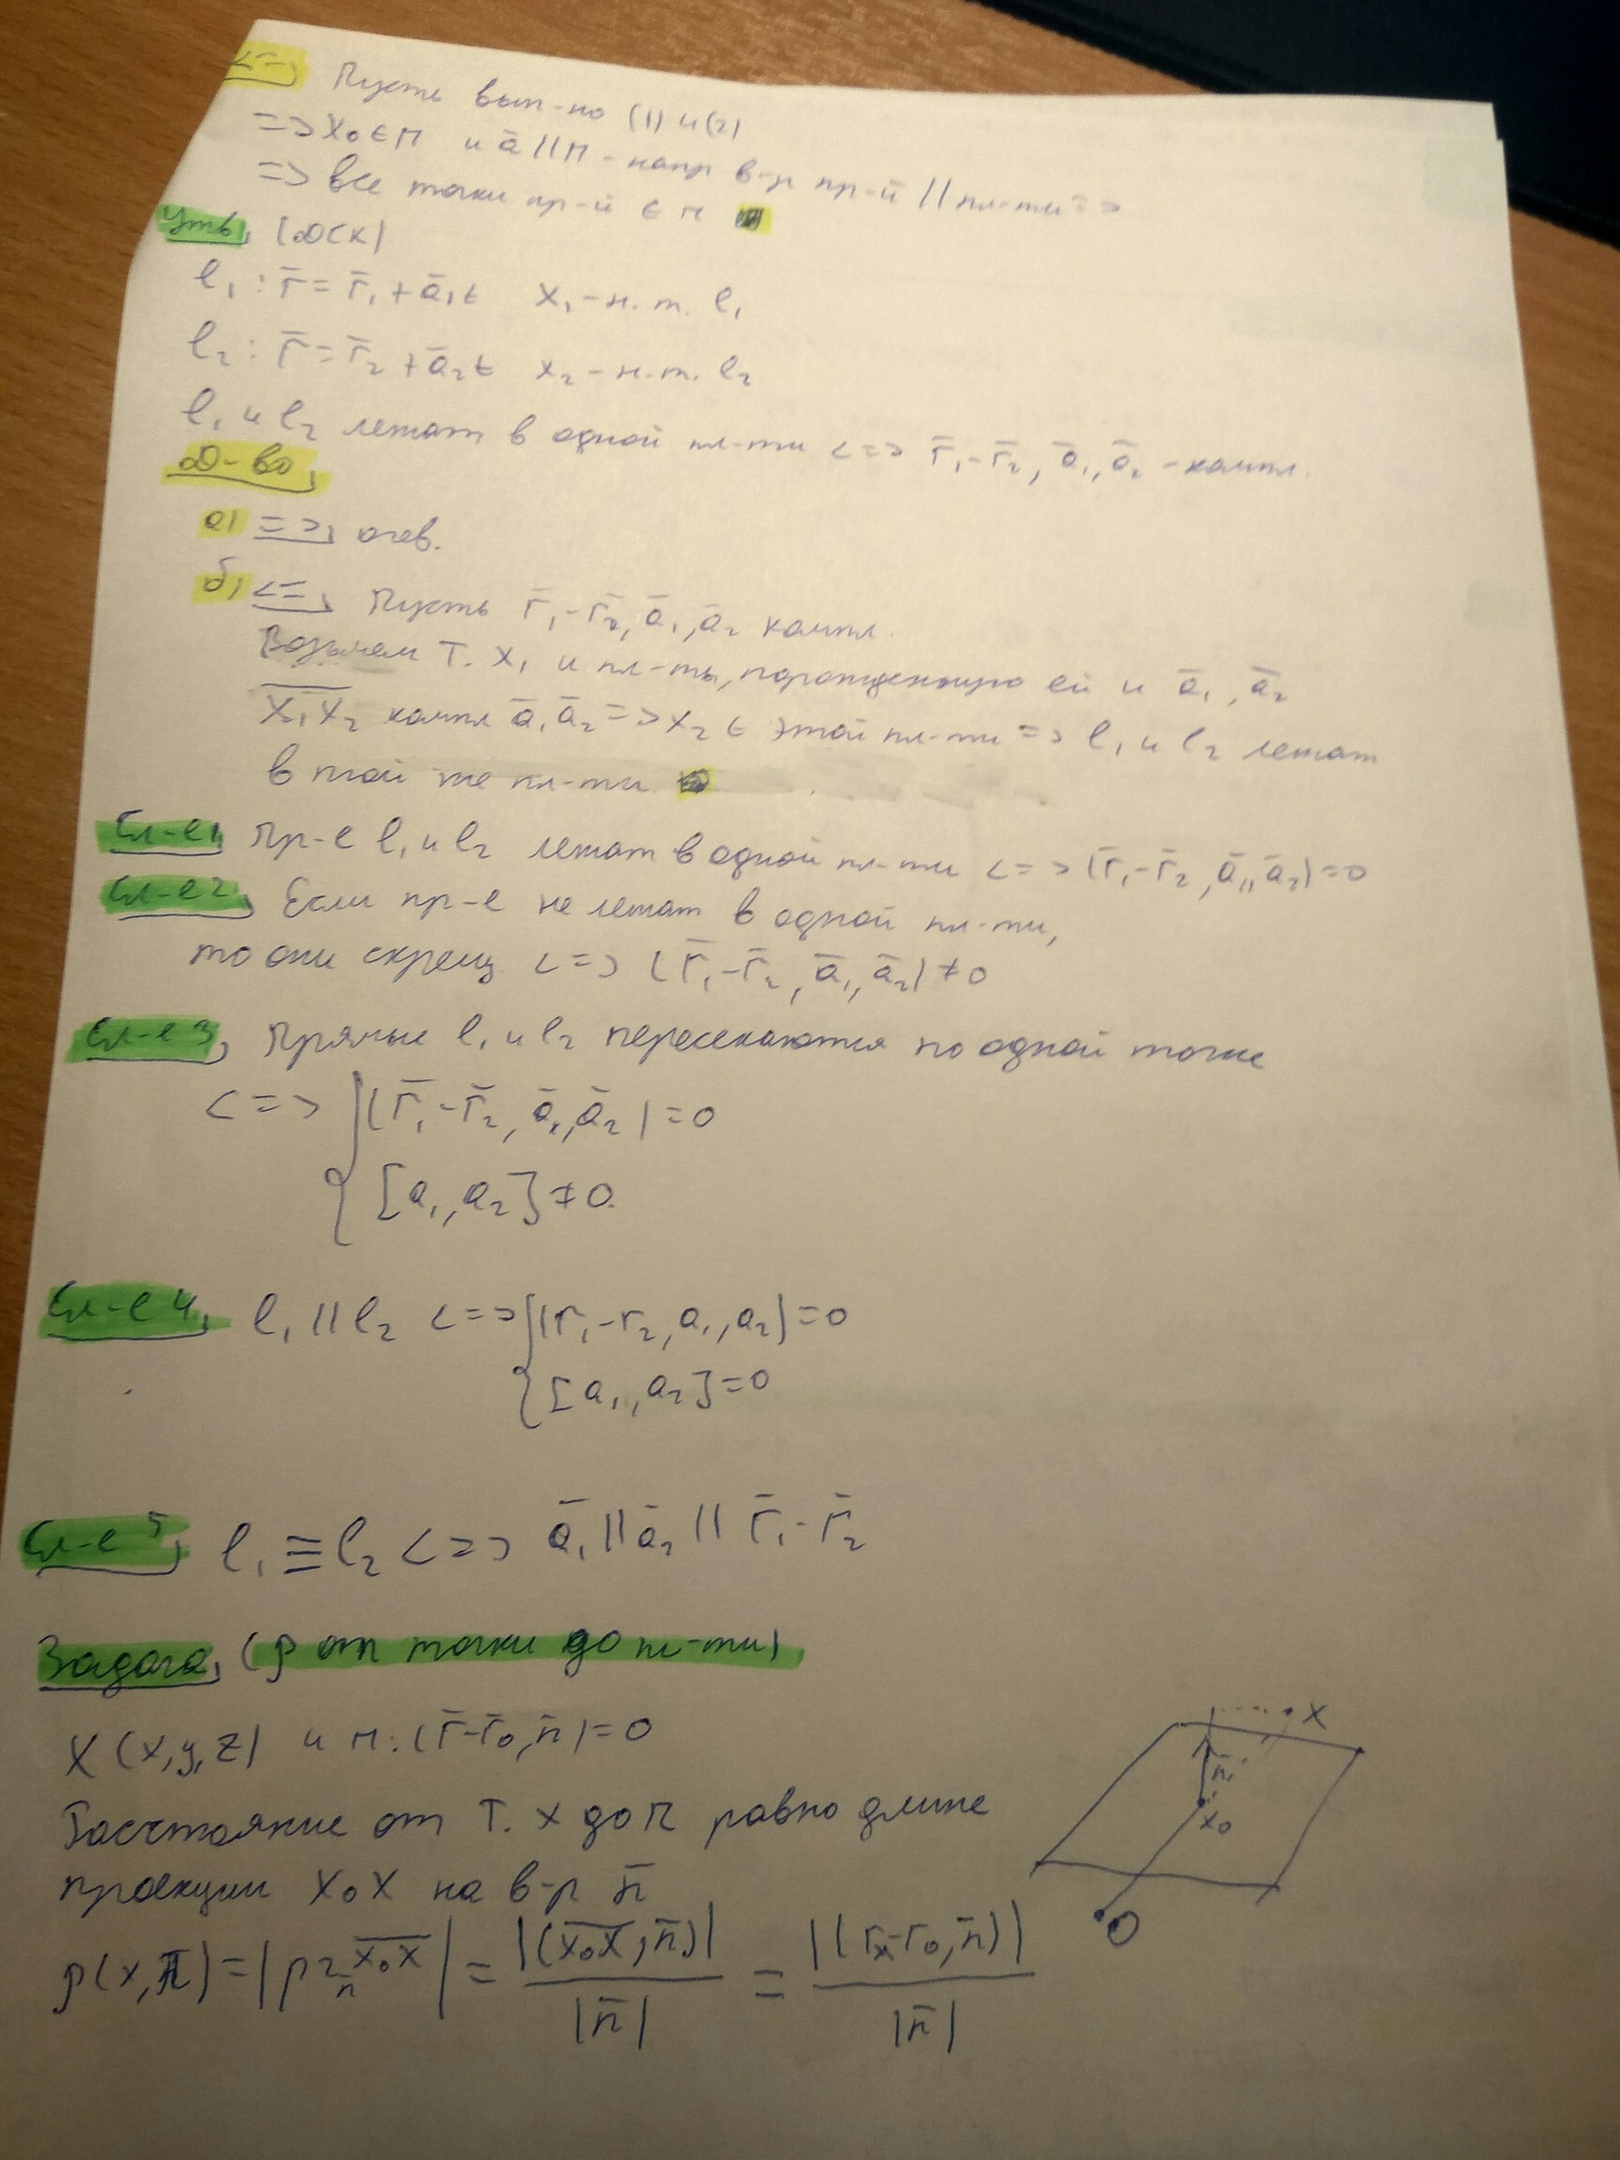 <=) Пусть вып-но (1) и (2)
=> X₀ ∈ П и ā || П - напр в-р пр-й || пл-ти =>
=> все точки пр-й ∈ П
Утв. (ДСК)
l₁: r̄ = r̄₁ + ā₁t X₁ - н.т. l₁
l₂: r̄ = r̄₂ + ā₂t X₂ - н.т. l₂
l₁ и l₂ лежат в одной пл-ти <=> r̄₁ - r̄₂, ā₁, ā₂ - компл.
Д-во
а) => очев.
б) <= Пусть r̄₁ - r̄₂, ā₁, ā₂ компл.
Возьмем т. X₁ и пл-ть, порожденную ей и ā₁, ā₂
X₁X₂ компл ā₁ ā₂ => X₂ ∈ этой пл-ти => l₁ и l₂ лежат
в этой же пл-ти
Сл-е 1 Пр-е l₁ и l₂ лежат в одной пл-ти <=> (r̄₁ - r̄₂, ā₁, ā₂) = 0
Сл-е 2 Если пр-е не лежат в одной пл-ти,
то они скрещ. <=> (r̄₁ - r̄₂, ā₁, ā₂) ≠ 0
Сл-е 3 Прямые l₁ и l₂ пересекаются по одной точке
<=> { (r̄₁ - r̄₂, ā₁, ā₂) = 0
[a₁, a₂] ≠ 0.
Сл-е 4 l₁ || l₂ <=> { (r₁ - r₂, a₁, a₂) = 0
[a₁, a₂] = 0
Сл-е 5 l₁ ≡ l₂ <=> ā₁ || ā₂ || r̄₁ - r̄₂
Задача (ρ от точки до пл-ти)
X (x, y, z) и П: (r̄ - r̄₀, n̄) = 0
Расстояние от т. X до П равно длине
проекции X₀X на в-р n̄
ρ(x, π) = |pr_n̄ X₀X| = |(X₀X, n̄)| / |n̄| = |(rₓ - r₀, n̄)| / |n̄|
X
n̄
X₀
O